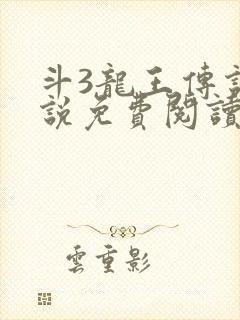 斗3龍王傳
說免費閱讀
雲重影